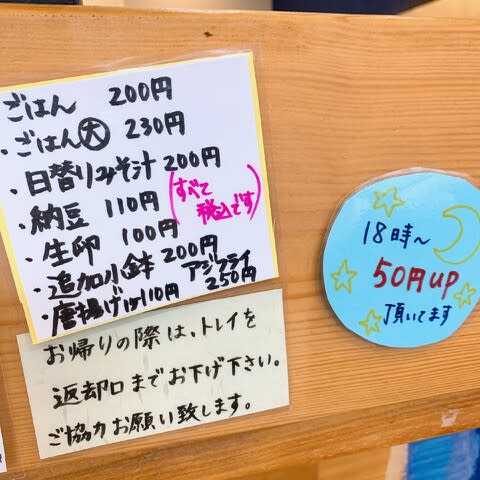 ごはん 200円
・ごはん大 230円
・日替りみそ汁 200円
・納豆 110円
(すべて
税込です)
・生卵 100円
・追加小鉢 200円
・唐揚げ1ヶ110円 アジフライ
250円
お帰りの際は、トレイを
返却口までお下げ下さい。
ご協力お願い致します。
18時〜
50円UP
頂いてます